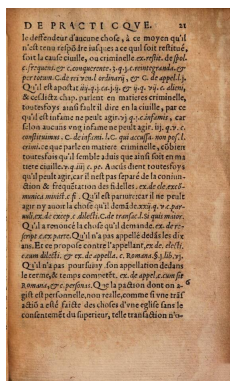 DE PRACTICQVE. 21
le deffendeur d'aucune chose, à ce moyen qu'il
n'est tenu respōdre iusques a ce qui soit restitué,
soit la cause ciuille, ou criminelle ex. restit. de spol.
c. frequens. & c. conquerente. 3. q. j. c. reintegranda. &
per totum. C. de rei ven. l. ordinarij , & C. de appel. l. j.
Qu'il est apostat iiij. q. j. ca. j. ij. & ij. q. vij. c. alieni,
& ces sectz chap. parlent en matieres criminelle,
toutesfoys ainsi fault il dire en la ciuille, par ce
qu'il est infame ne peult agir. vj. q. j. c. infamis, car
selon aucuns vng infame ne peult agir. iij. q. v. c.
constituimus C. de infami. l. C. qui accusa. non pos. l.
crimi. ce que parle en matiere criminelle, cōbien
toutesfois qu'il semble aduis que ainsi soit en ma
tiere ciuille. v. q. iij. c. pe. Aucūs dient toutesfoys
qu'il peult agir, car il n'est pas separé de la coniun-
ction & frequētation des fidelles. ex de cle. excō-
munica. minist. c. fi . Qu'il est pariure: car il ne peult
agir ny auoir la chose qu'il demāde. xxij. q. v. c. par-
nuli. ex de excep. c. dilecti. C. de transac. l. Si quis maior.
Qu'il a renoncé la chose qu'il demande. ex. de re-
scrip. c. ex parte. Qu'il n'a pas appellé dedās les dix
ans. Et ce propose contre l'appellant, ex de. electi.
c. cum dilecti. & ex. de appella. c. Romana. §. j. lib. vj.
Qu'il n'a pas poursuiuy son appellation dedans
le terme, & temps competēt. ex. de appel. c. cum sit
Romana, & c. personas. Que la paction dont on a-
gist est personnelle, non realle, comme si vne trās
actiō a esté faicte des choses d'vne eglise sans le
consentemēt du superieur, telle transaction n'o-